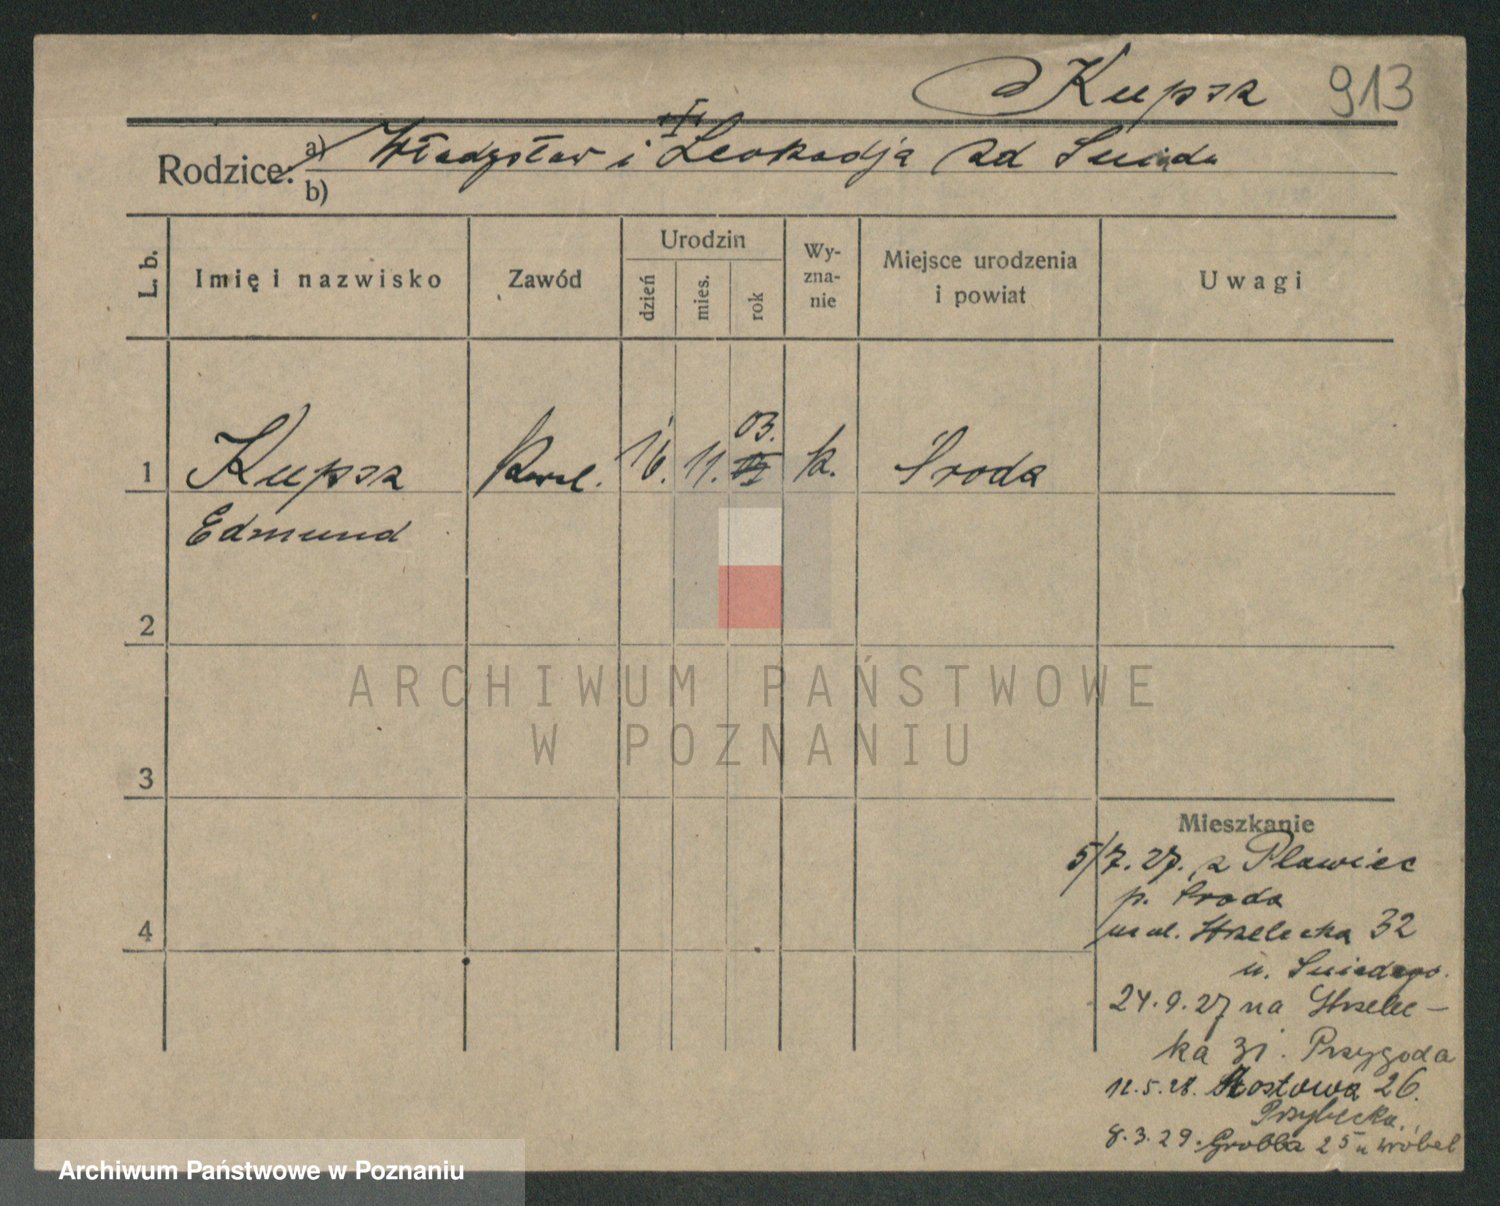 Kupsz 913
Rodzice: a) Władysław i Leokadja
b)
L. b.
Imię i nazwisko
Zawód
Urodzin
dzień
mies.
rok
Wy-
zna-
nie
Miejsce urodzenia
i powiat
Uwagi
1 Kupsz 16. 11. 03. k. Środa
Edmund
2
3
4
Mieszkanie
5/7.27. z Pławiec
p. Środa
Strzelecka 32
u.
24.9.27 na Strzelec-
ka 31. Przygoda
12.5.28. Mostowa 26.
Przybecka.
8.3.29. Grobla 25 u Wróbel
ARCHIWUM PAŃSTWOWE
W POZNANIU
Archiwum Państwowe w Poznaniu